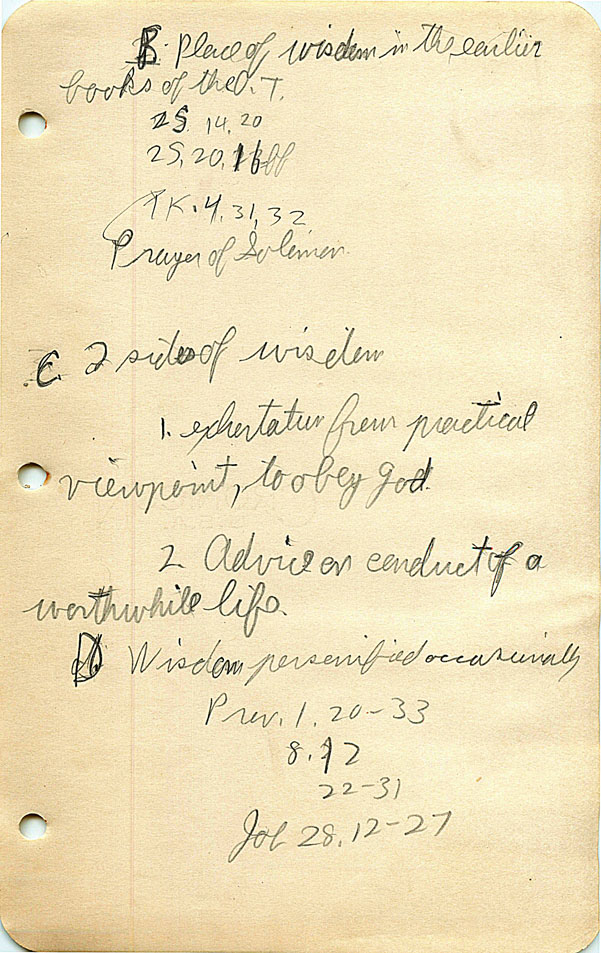 B. Place of wisdom in the earlier
books of the O.T.
2S. 14, 20
2S, 20, 16ff
1K. 4, 31, 32
Prayer of Solomon.
C. 2 sides of wisdom
1. exhortation from practical
viewpoint, to obey God.
2 Advice on conduct of a
worthwhile life.
D Wisdom personified occasionally
Prov. 1, 20-33
8, 12
22-31
Job 28, 12-27